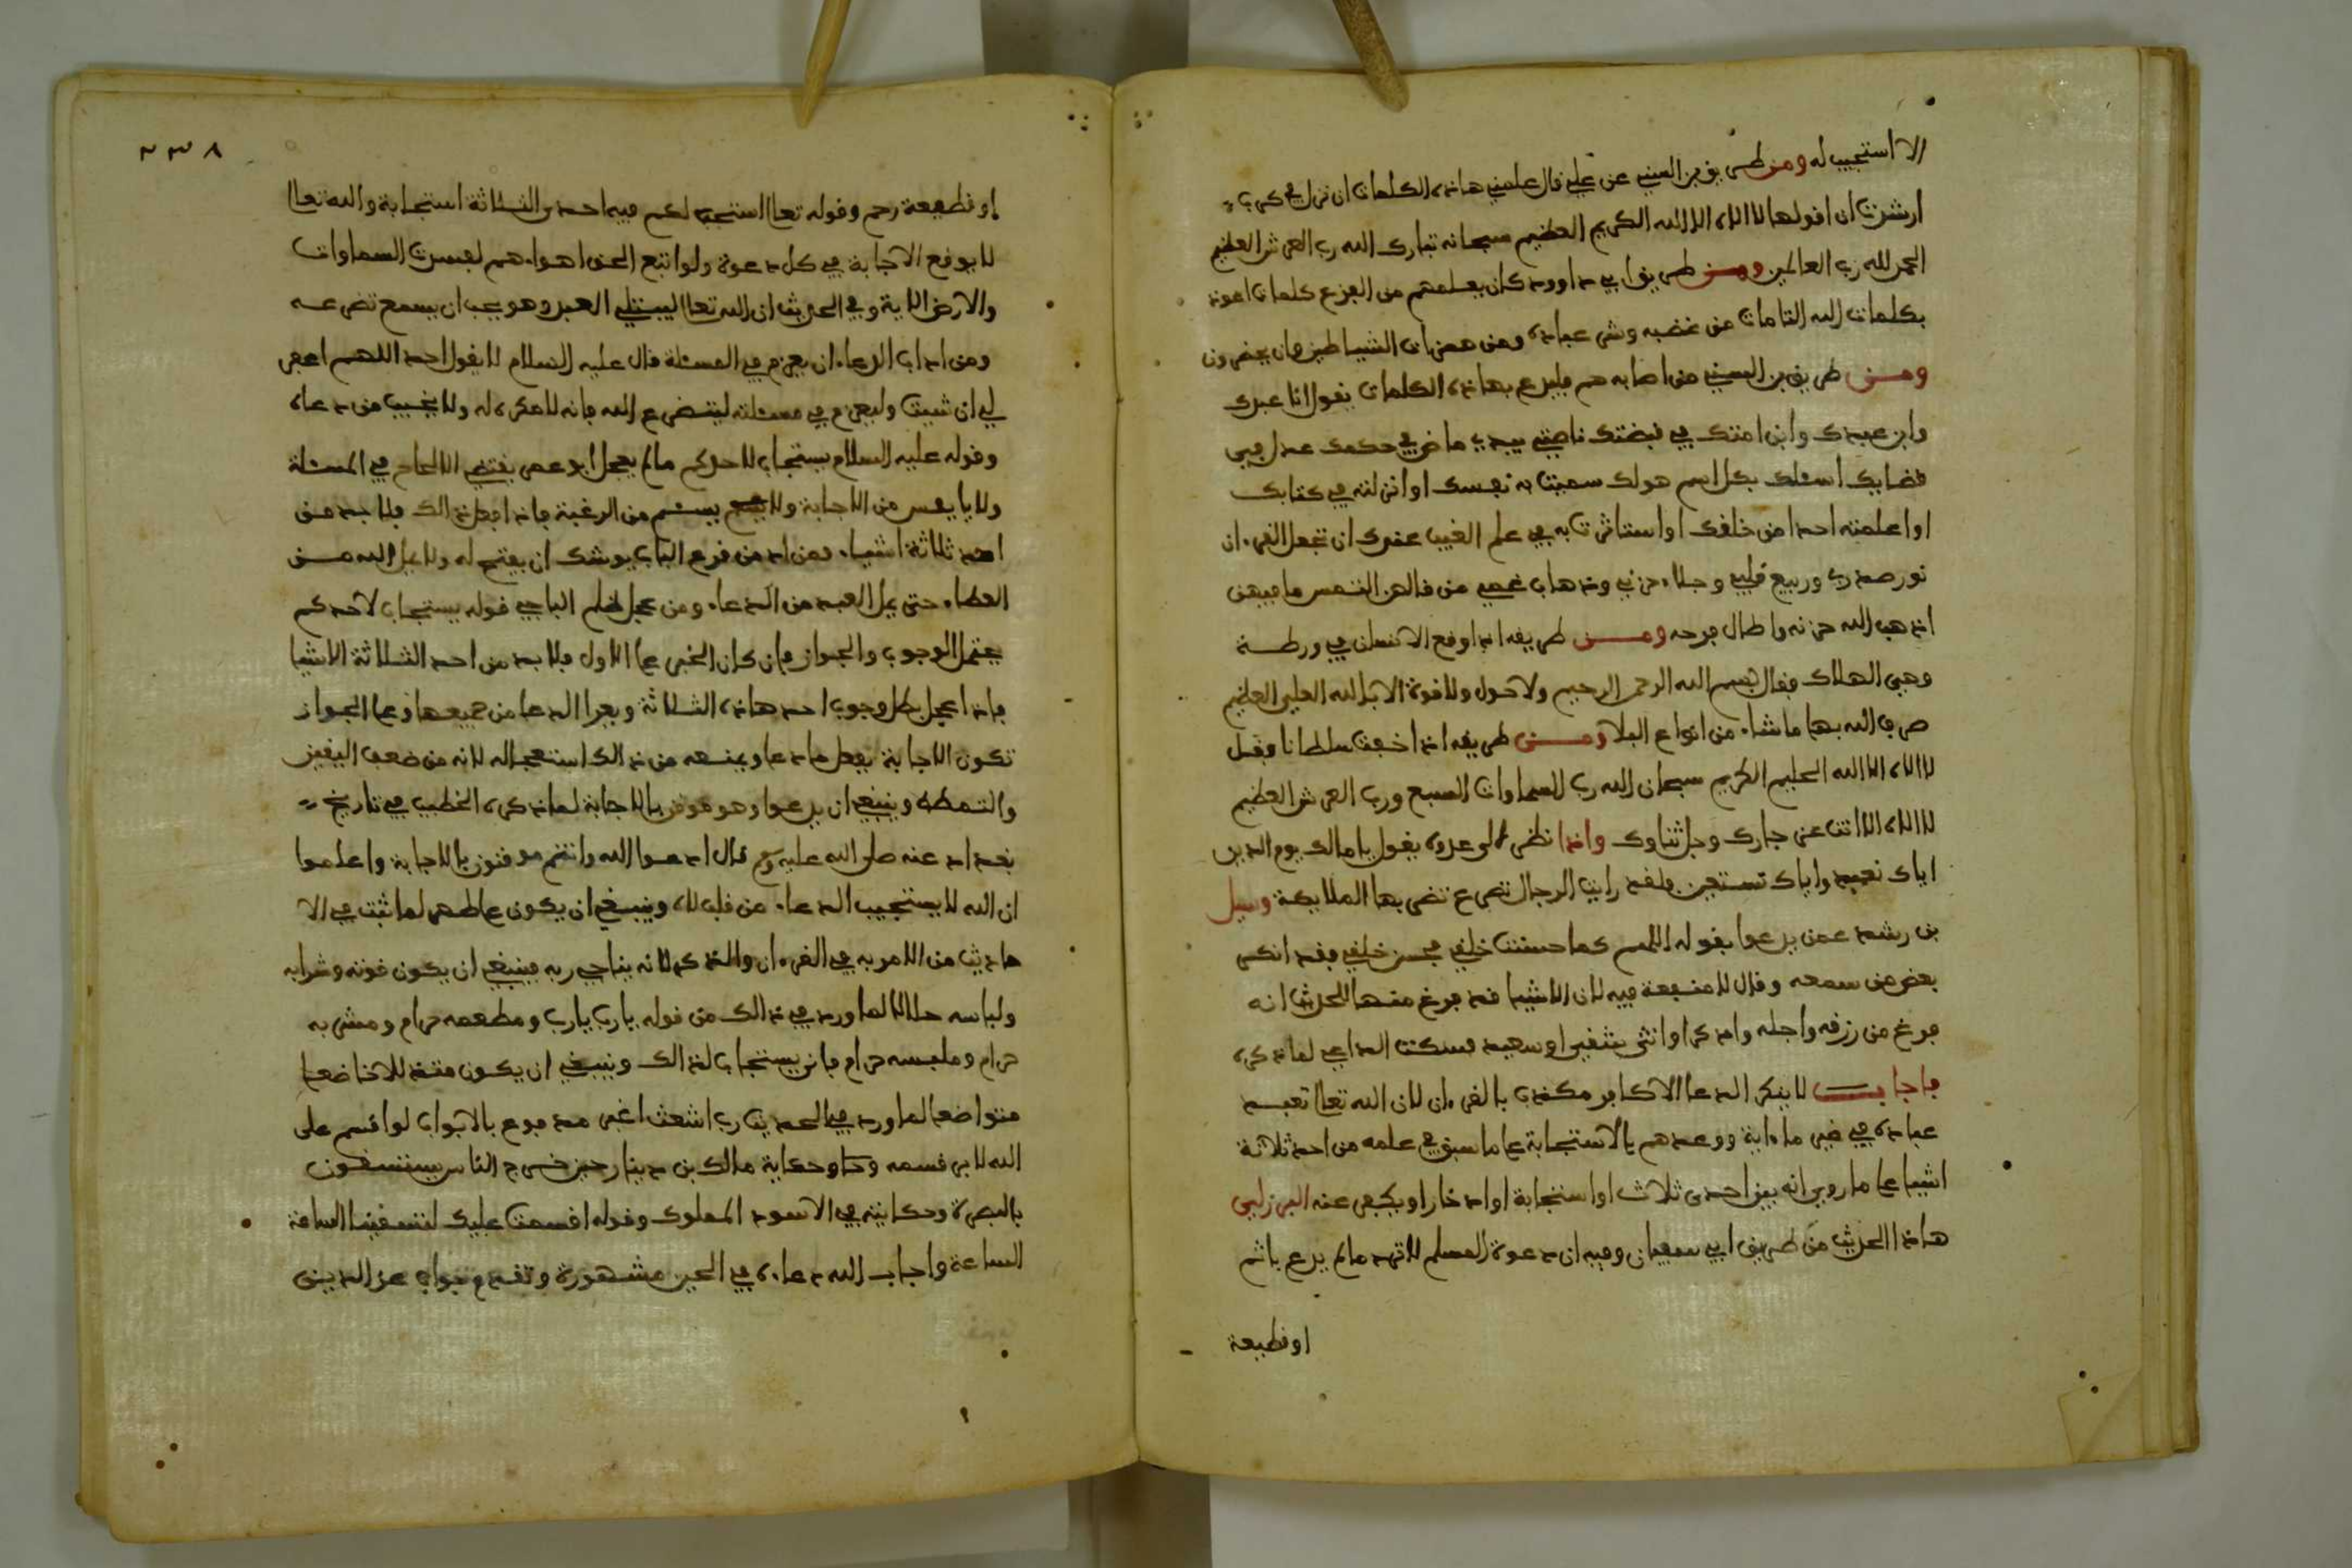 الا استجيب له ومن طريق بن السني عن علي قال علمني هاذه الكلمات ان نزل بي كرب
او شدة ان اقولها لا اله الا الله الكريم العظيم سبحانه تبارك الله رب العرش العظيم
الحمد لله رب العالمين ومن طريق ابي داوود كان يعلمهم من الفزع كلمات اعوذ
بكلمات الله التامات من غضبه وشر عباده ومن همزات الشياطين وان يحضرون
ومن طريق بن السني من اصابه هم فليدع بهاذه الكلمات يقول انا عبدك
وابن عبدك وابن امتك في قبضتك ناصيتي بيدك ماض في حكمك عدل في
قضايك اسئلك بكل اسم هو لك سميت به نفسك او انزلته في كتابك
او اعلمته احدا من خلقك او استاثرت به في علم الغيب عندك ان تجعل القرءان
نور صدري وربيع قلبي وجلاء حزني وذهاب غمي من قالهن
اذهب الله حزنه واطال فرحه ومن طريقه اذا وقع الانسان في ورطة
وهي الهلاك فقال بسم الله الرحمن الرحيم ولا حول ولا قوة الا بالله العلي العظيم
صرف الله بها ما شاء من انواع البلا ومن طريقه اذا خفت سلطانا فقل
لا اله الا الله الحليم الكريم سبحان الله رب السماوات السبع ورب العرش العظيم
لا اله الا انت عز جارك وجل ثناوك واذا نظر الى عدوه يقول يا مالك يوم الدين
اياك نعبد واياك نستعين فلقد رايت الرجال تصرع تضربها الملايكة وسيل
بن رشد عمن يدعوا بقوله اللهم كما حسنت خلقي فحسن خلقي فقد انكر
بعض من سمعه وقال لا منفعة فيه لان الاشيا قد فرغ منها للحديث انه
فرغ من رزقه واجله واذكر او انثى شقي او سعيد فسكت الداعي لما ذكره
فاجاب لا ينكر الدعا الا كافر مكذب بالقرءان لان الله تعالى تعبد
عباده في غير ما ءاية ووعدهم بالاستجابة على ما سبق في علمه من احد ثلاثة
اشيا على ما روي انه بين احدى ثلاث اما استجابة او ادخار او يكفر عنه البرزلي
هاذا الحديث من طريق ابي سفيان وفيه ان دعوة المسلم لا ترد ما لم يدع باثم
او قطيعة
٢٣٨
او قطيعة رحم وقوله تعالى استجب لكم فيه احد الثلاثة استجابة والله تعالى
لا يوقع الاجابة في كل دعوة ولو اتبع الحق اهواءهم لفسدت السماوات
والارض الاية وفي الحديث ان الله تعالى ليبتلي العبد وهو يحب ان يسمع تضرعه
ومن اداب الدعاء ان يعزم في المسئلة قال عليه السلام لا يقول احد اللهم اغفر
لي ان شيت وليعزم في مسئلته ليتضرع الله فانه لا مكره له ولا يخيب من دعاه
وقوله عليه السلام يستجاب لاحدكم ما لم يعجل ابو عمر يقتضي الالحاح في المسئلة
ولا يايس من الاجابة ولا يسئم من الرغبة فاذا فعل ذالك فلا بد من
احد ثلاثة اشياء فمن ادمن قرع الباب يوشك ان يفتح له ولا يمل الله من
العطاء حتى يمل العبد من الدعاء ومن عجل لم الباجي قوله يستجاب لاحدكم
يحتمل الوجوب والجواز فان كان الخبر على الاول فلا بد من احد الثلاثة الاشيا
فاذا عجل بطل وجوب احد هاذه الثلاثة ويعرا الدعا من جميعها وعلى الجواز
تكون الاجابة بفعل ما دعا ويمنعه من ذالك استعجاله لانه من ضعف اليقين
والتسخط وينبغي ان يدعوا وهو موقن بالاجابة لما ذكره الخطيب في تاريخ
بغداد عنه صلى الله عليه وسلم قال ادعوا الله وانتم موقنون بالاجابة واعلموا
ان الله لا يستجيب الدعاء من قلب لاه وينبغي ان يكون على طهر لما ثبت في الا
حاديث من الامر به في القرءان والذكر لانه يناجي ربه فينبغي ان يكون قوته وشرابه
ولباسه حلالا لما ورد في ذالك من قوله يا رب يا رب ومطعمه حرام ومشربه
حرام وملبسه حرام فانى يستجاب لذالك وينبغي ان يكون متذللا خاضعا
متواضعا لما ورد في الحديث رب اشعث اغبر مدفوع بالابواب لو اقسم على
الله لابر قسمه وحكاية مالك بن دينار حين خرج الناس يستسقون
بالبصرة وحكايته في الاسود المملوك وقوله اقسمت عليك لتسقينا الساعة
الساعة واجاب الله دعاءه في الحين مشهورة وتقدم جواب عز الدين